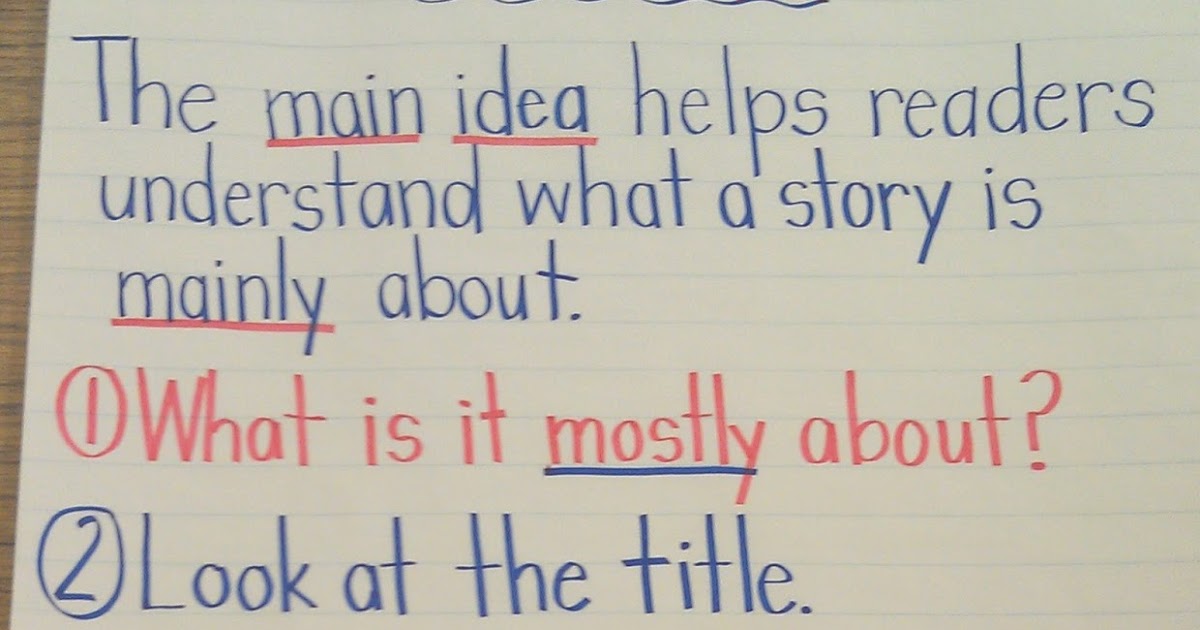 The main idea helps readers
understand what a story is
mainly about.
①What is it mostly about?
②Look at the title.